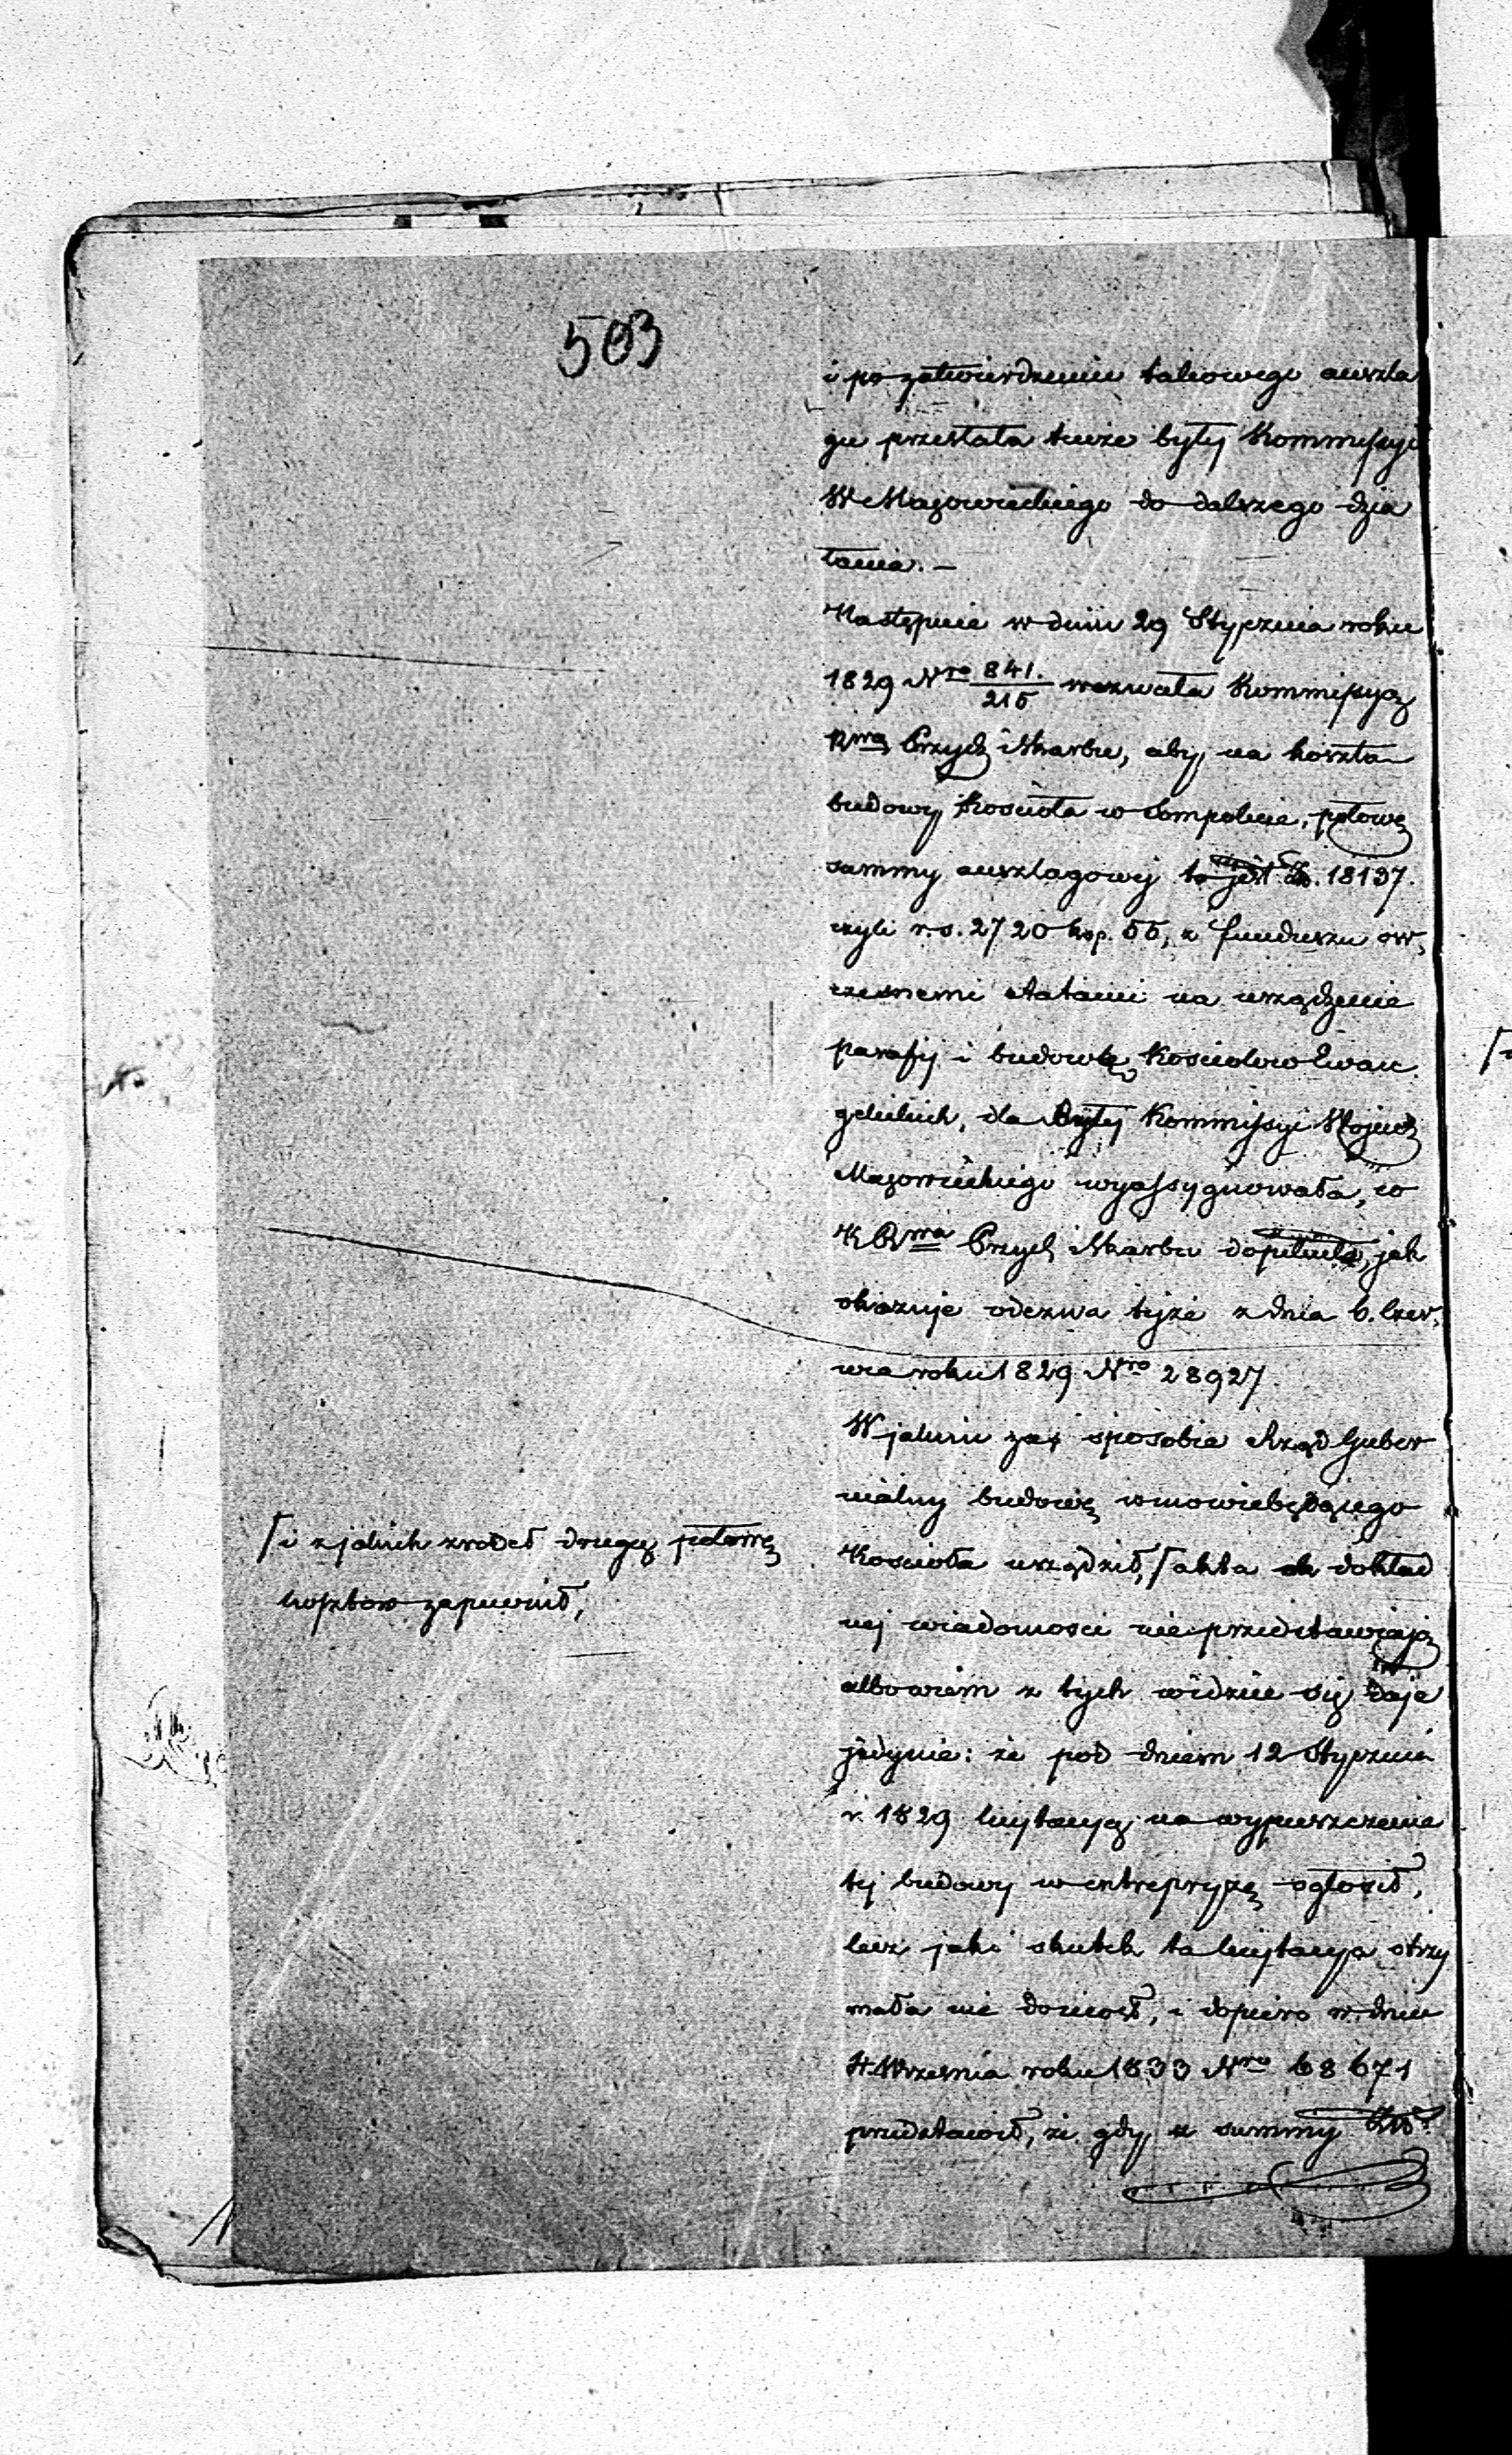 503
i po zatwierdzeniu takowego auszla
gu przesłała tenże byłej Kommissyi
W Mazowieckiego do dalszego dzia
łania. —
Następnie w dniu 29 Stycznia roku
1829 Nro 841./215 wezwała Kommissyą
Rwą Przych i Skarbu, aby na koszta
budowy Kościoła w Sompolnie, połowę
summy auszlagowej to jest Złp. 18137.
czyli r.s. 2720 kop. 55, z funduszu ów,
czesnemi etatami na urządzenie
parafij i budowlę Kościołów Ewan
gelickich, dla byłej Kommissyi Wojewó
Mazowieckiego wyassygnowała, co
K Rwa Przych Skarbu dopełniła, jak
okazuje odezwa tejże z dnia 6. Czer,
wca roku 1829 Nro 28927.
W jakim zaś sposobie Rząd Guber
nialny budowę w mowie będącego
Kościoła urządził, ⌈ akta dokład
nej wiadomości nie przedstawiają
albowiem z tych widzieć się daje
jedynie: że pod dniem 12 Stycznia
r. 1829 licytacyą na wypuszczenie
tej budowy w entrepryzę ogłosił,
lecz jaki skutek ta licytacya otrzy
mała nie doniosł, i dopiero w dniu
Września roku 1833 Nro 68671
przedstawił, że gdy z summy Złp.
⌈ i z jakich zrodeł drugą połowę
kosztow zapewnił,